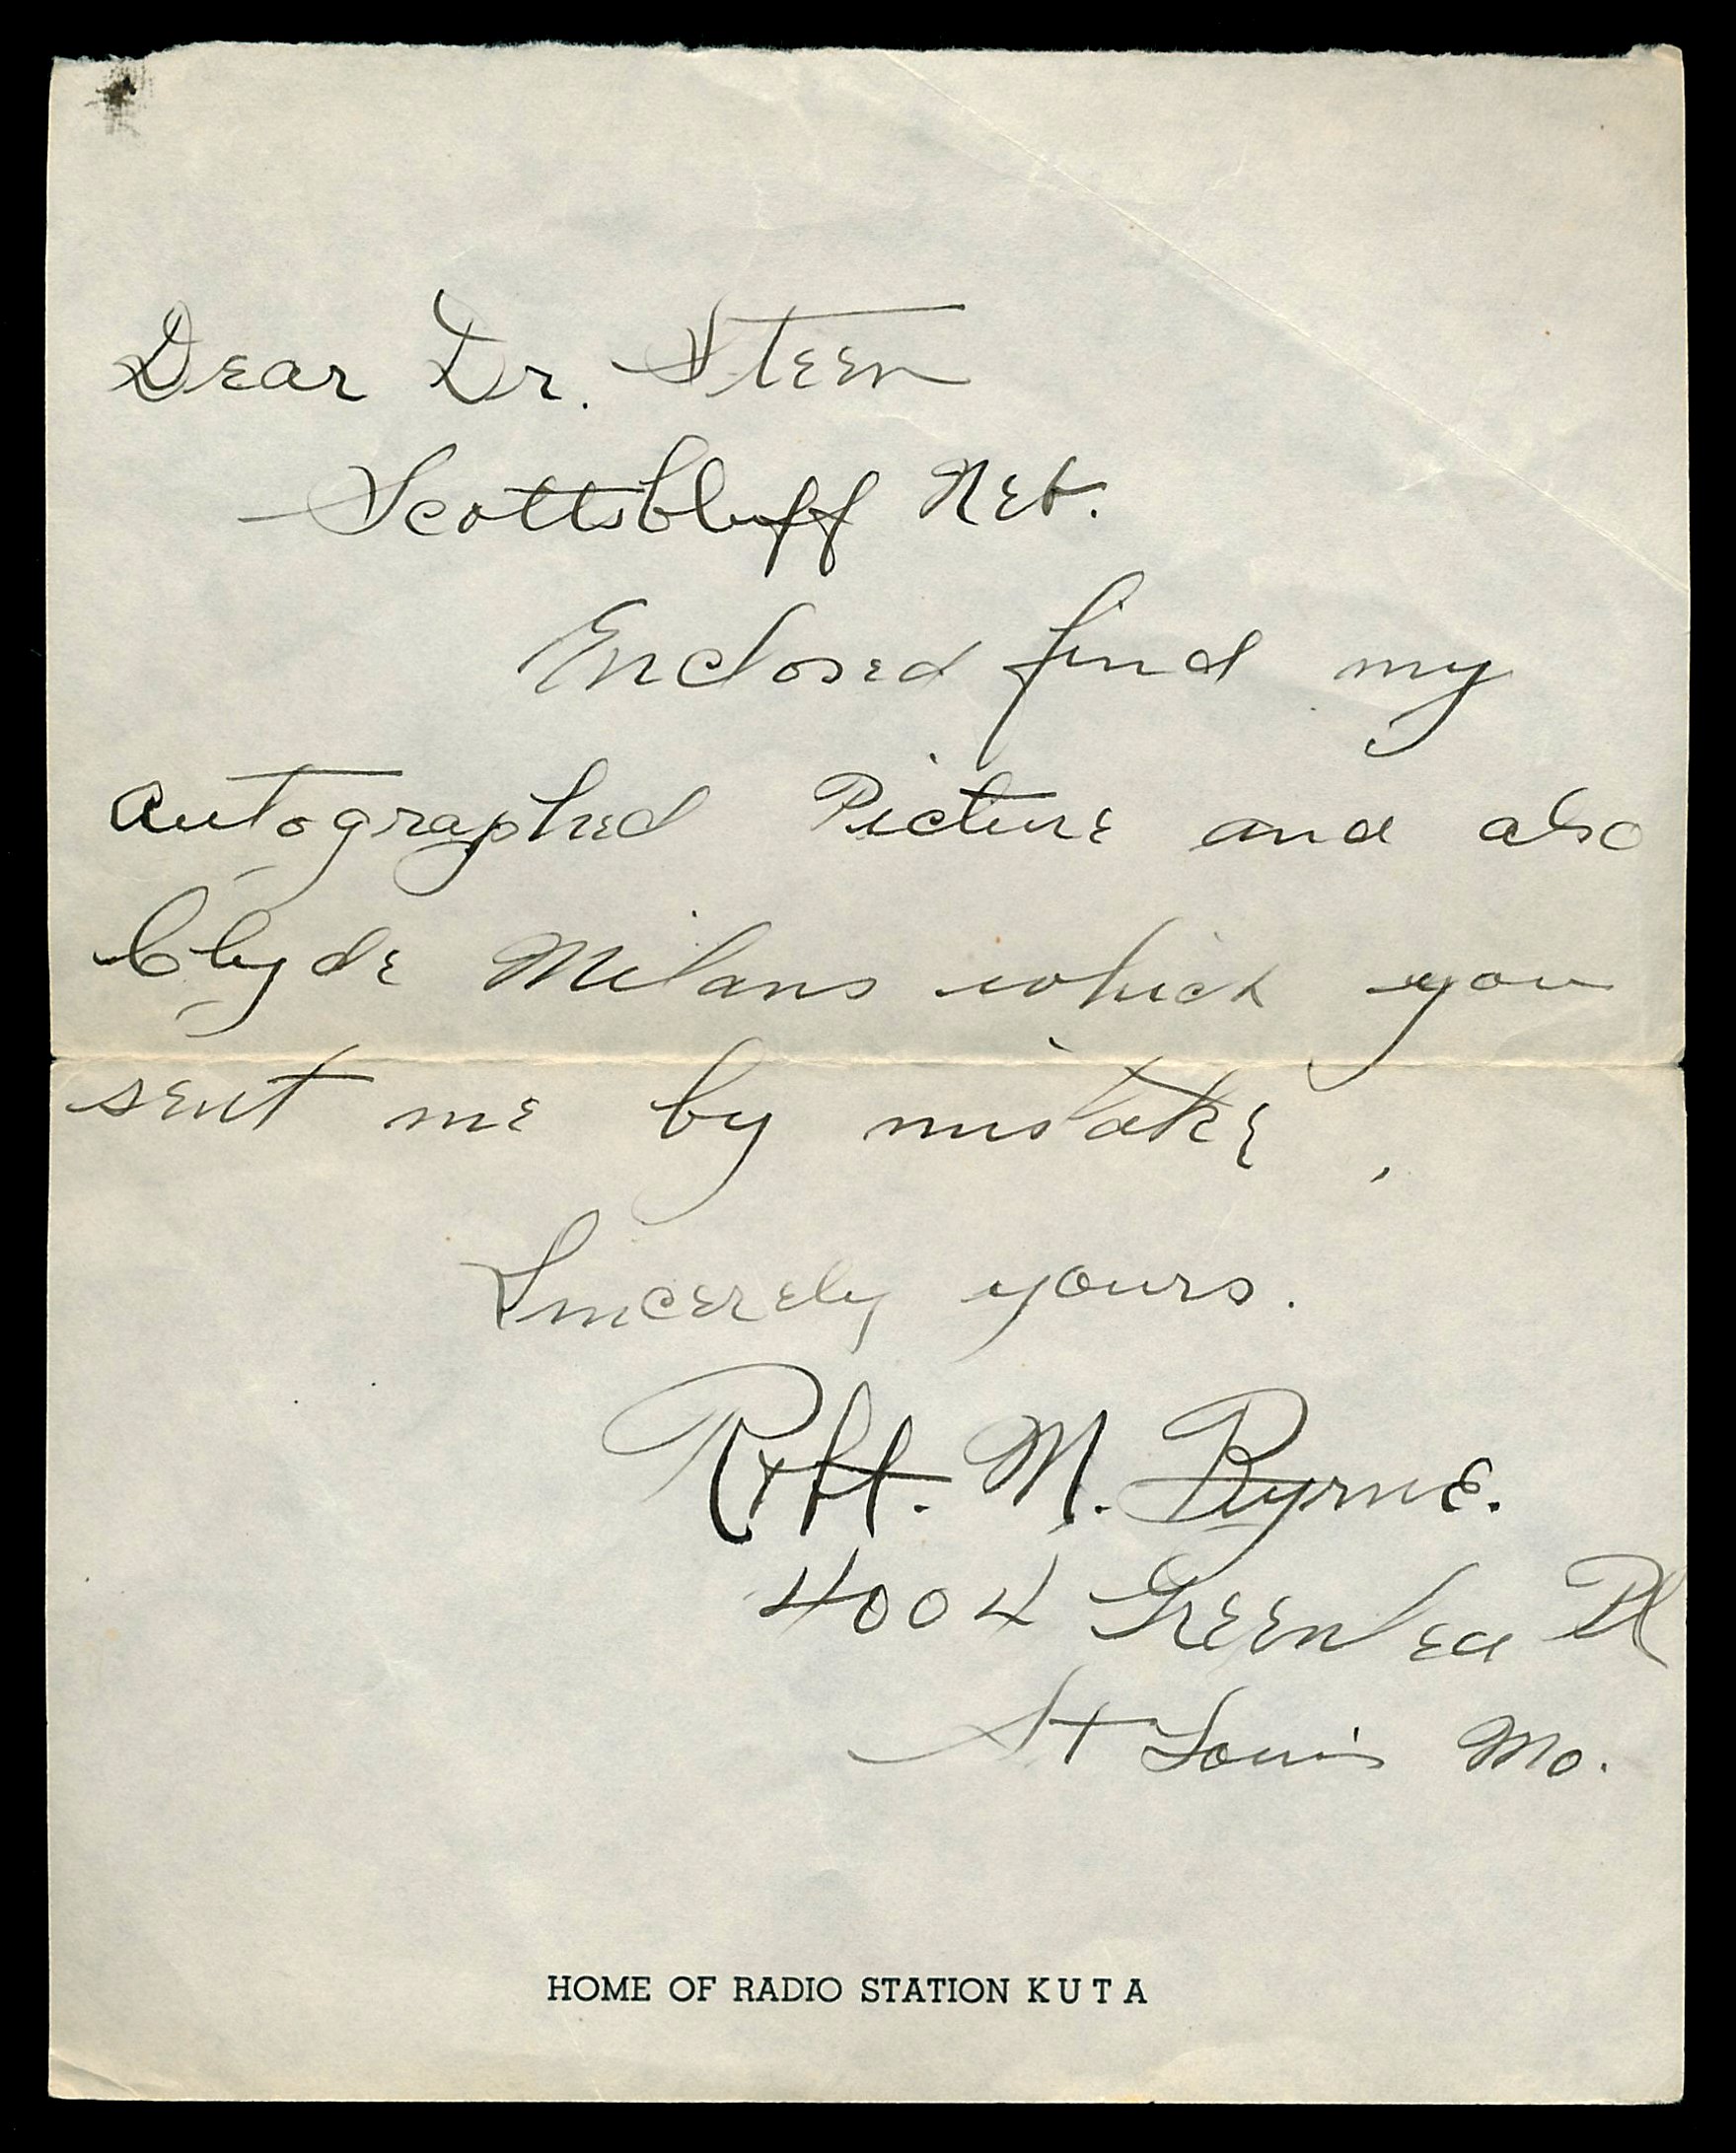 Dear Dr. Steen
Scottsbluff Neb.
Enclosed find my
autographed Picture and also
Clyde Milans which you
sent me by mistake.
Sincerely yours.
Robt. M. Byrne.
4004 Greenlea Pl
St Louis Mo.
HOME OF RADIO STATION KUTA